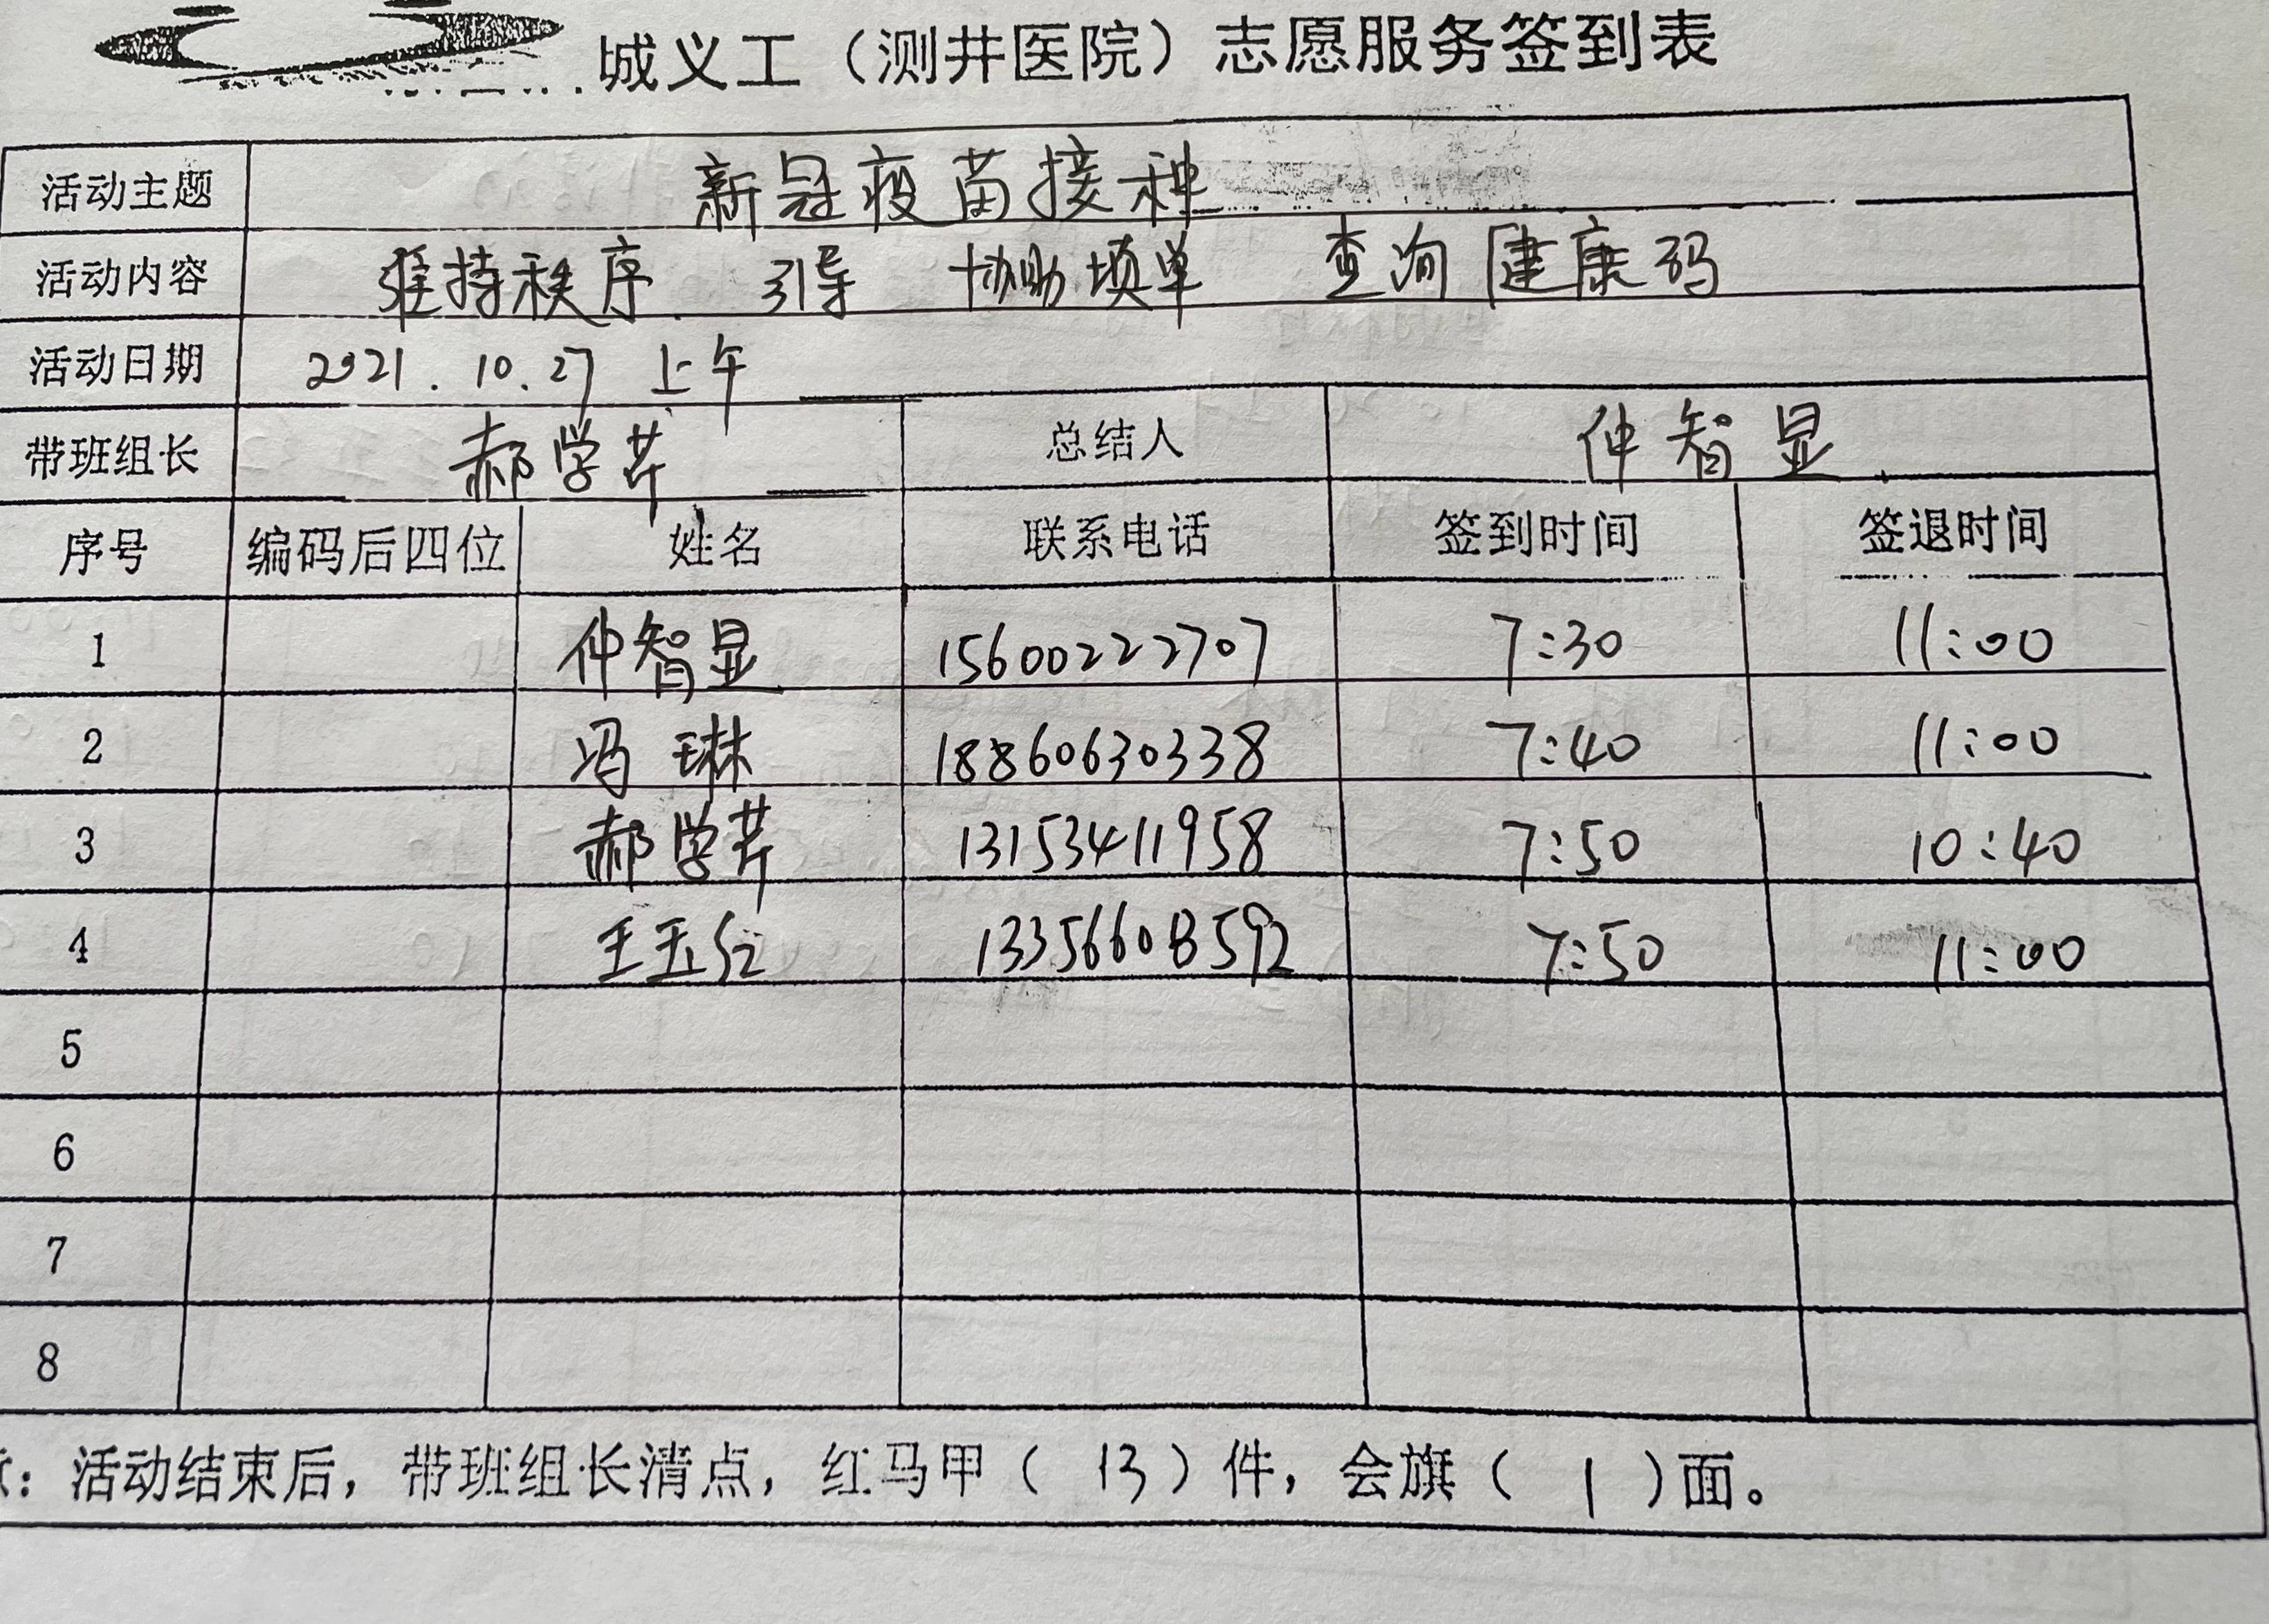 城义工（测井医院）志愿服务签到表
活动主题 新冠疫苗接种
活动内容 维持秩序 引导 协助填单 查询健康码
活动日期 2021.10.27 上午
带班组长 郝学芹 总结人 仲智显
序号 编码后四位 姓名 联系电话 签到时间 签退时间
1 仲智显 15600222707 7:30 11:00
2 冯琳 18860630338 7:40 11:00
3 郝学芹 13153411958 7:50 10:40
4 王玉红 7:50 11:00
5
6
7
8
：活动结束后，带班组长清点，红马甲（ 13 ）件，会旗（ 1 ）面。